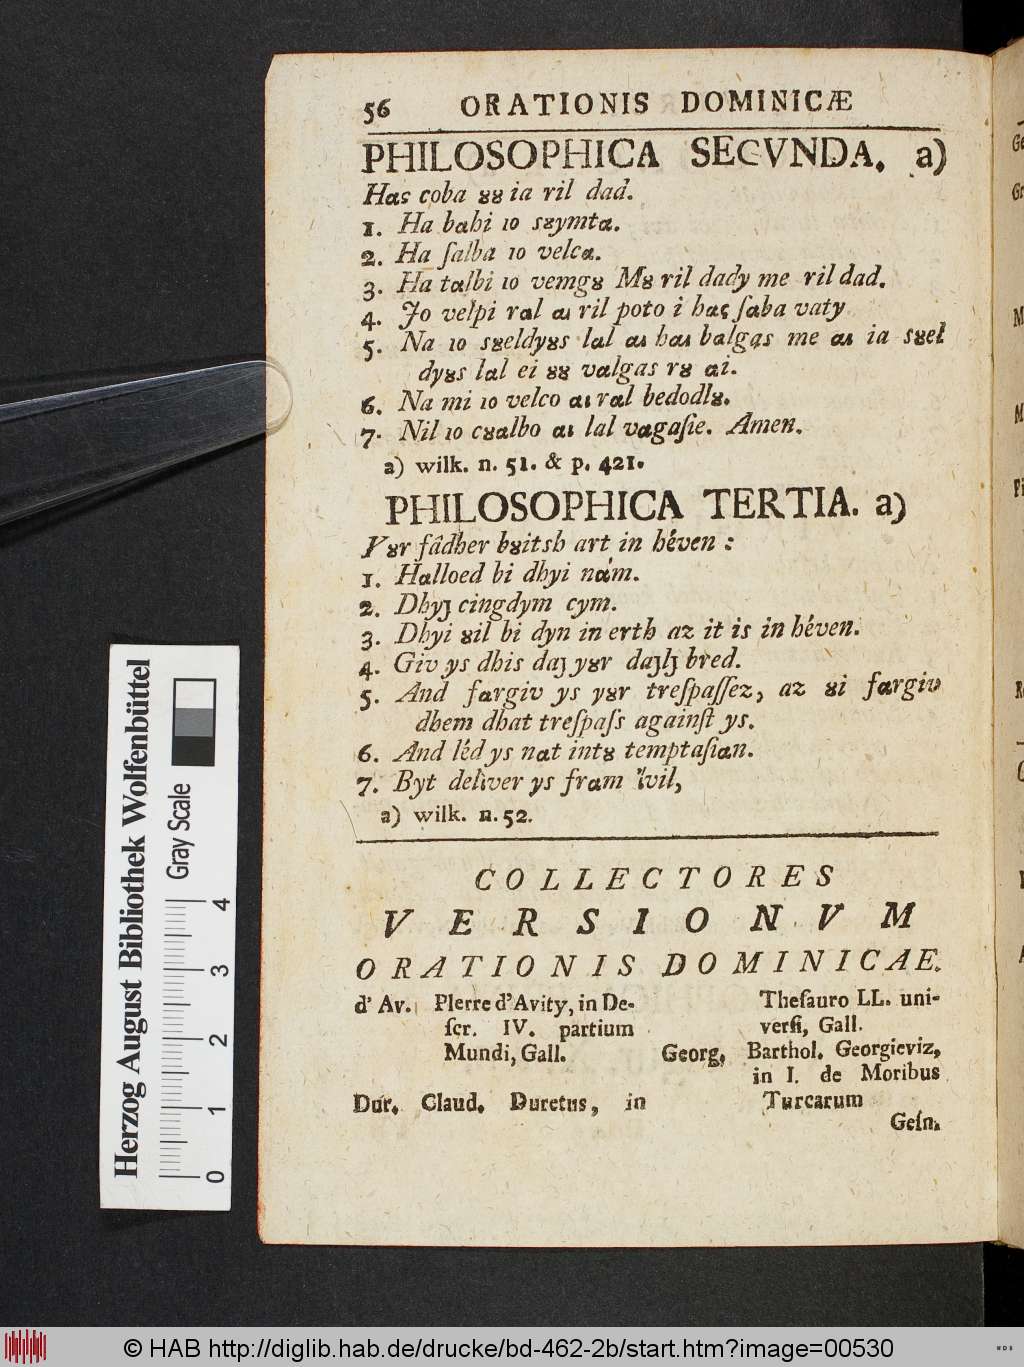 56 ORATIONIS DOMINICÆ
PHILOSOPHICA SECVNDA. a)
Hας coba ȣȣ ia ril dad.
1. Ha bαhi ıo sȣymtα.
2. Ha ſalba ıo velcα.
3. Ha tαlbi ıo vemgȣ Mȣ ril dady me ril dad.
4. Jo velpi rαl αι ril poto i hας ſαba vaty
5. Na ıo sȣeldyȣs lαl αι hαι bαlgαs me αι ia sȣel
dyȣs lαl ei ȣȣ vαlgas rȣ αi.
6. Na mi ıo velco αι rαl bedodlȣ.
7. Nil ıo cȣαlbo αι lal vαgaſie. Amen.
a) wilk. n. 51. & p. 421.
PHILOSOPHICA TERTIA. a)
Yȣr fâdher bȣitsh art in héven :
1. Hαlloed bi dhyi nám.
2. Dhyȷ cingdym cym.
3. Dhyi ȣil bi dyn in erth az it is in héven.
4. Giv ys dhis daȷ yȣr daȷlȷ bred.
5. And fαrgiv ys yȣr treſpaſſez, az ȣi fαrgiv
dhem dhat treſpaſs againſt ys.
6. And léd ys nαt intȣ temptaſiαn.
7. Byt deliver ys frαm ívil,
a) wilk. n. 52.
COLLECTORES
VERSIONVM
ORATIONIS DOMINICAE.
d' Av. Pierre d'Avity, in De-
ſcr. IV. partium
Mundi, Gall.
Dur. Claud. Duretus, in
Theſauro LL. uni-
verſi, Gall.
Georg. Barthol. Georgieviz,
in I. de Moribus
Turcarum
Geſn.
Herzog August Bibliothek Wolfenbüttel
Gray Scale
0 1 2 3 4
© HAB http://diglib.hab.de/drucke/bd-462-2b/start.htm?image=00530